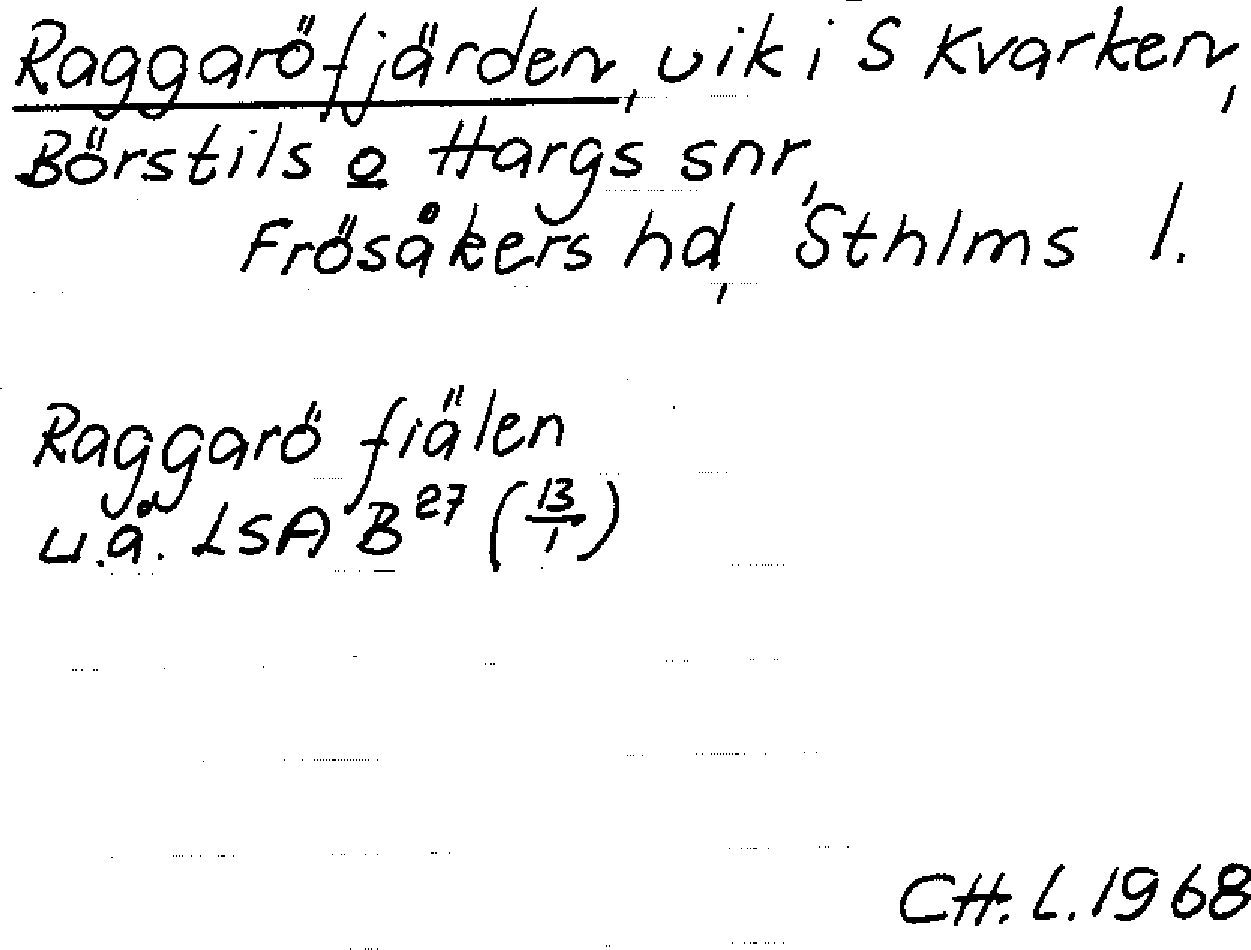 Raggaröfjärden, vik i S Kvarken,
Börstils o Hargs snr,
Frösåkers hd, Sthlms l.
Raggarö fiälen
u.å. LSA B27 (13/1)
CH. L. 1968